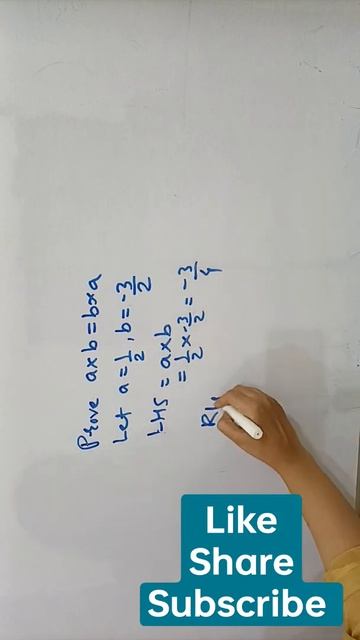 Prove a×b=b×a
Let a=1/2, b=-3/2
LHS = a×b
= 1/2 × -3/2 = -3/4
Like
Share
Subscribe